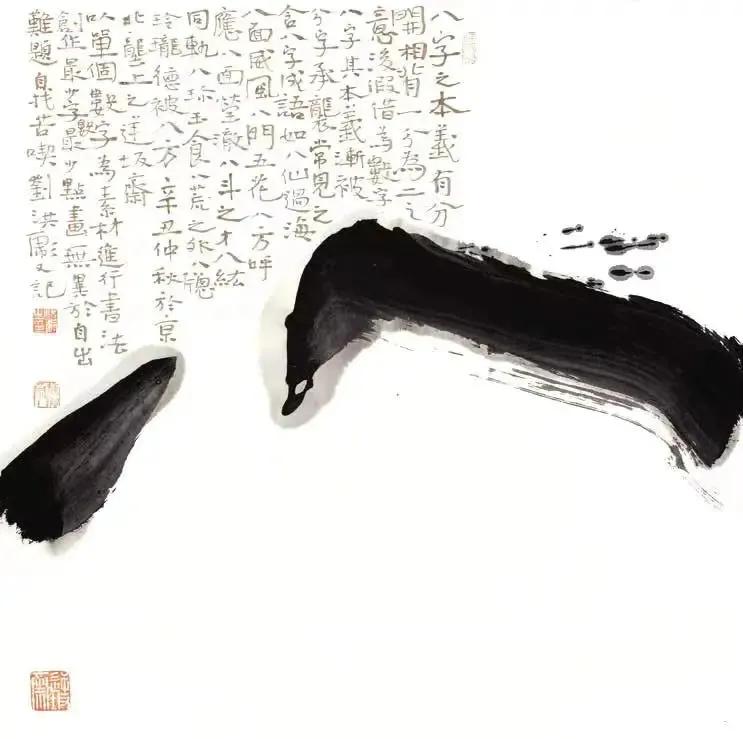 八字之本義有分
開相背一分為二之
意後假借為數字
八字其本義漸被
分字承襲常見之
含八字成語如八仙過海
八面威風八門五花八方呼
應八面瑩澈八斗之才八紘
同軌八珍玉食八荒之外八牕
玲瓏德被八方辛丑仲秋於京
北壟上之逆坂齋
以單個數字為素材進行書法
創作最少字數最少點畫無異於自出
難題自找苦喫劉洪彪又記
八